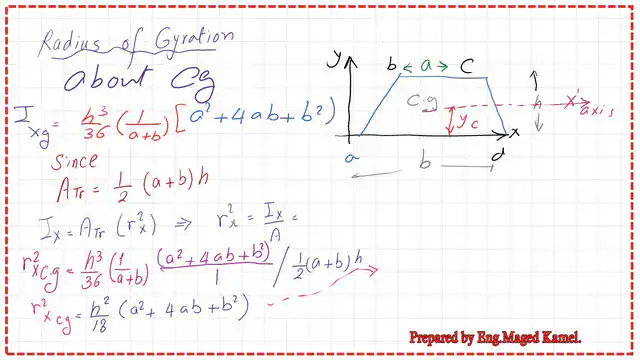 Radius of Gyration
about Cg
I xg = h³/36 (1/(a+b)) [a² + 4ab + b²)
since
A Tr = 1/2 (a+b) h
I x = A Tr (r²x) ⇒ r²x = I x/A =
r²x Cg = h³/36 (1/(a+b)) (a² + 4ab + b²)/1 / 1/2 (a+b) h
r²x cg = h²/18 (a² + 4ab + b²)
y
b a C
C.g
h
x' axis
y c
x
a
d
b
Prepared by Eng.Maged Kamel.